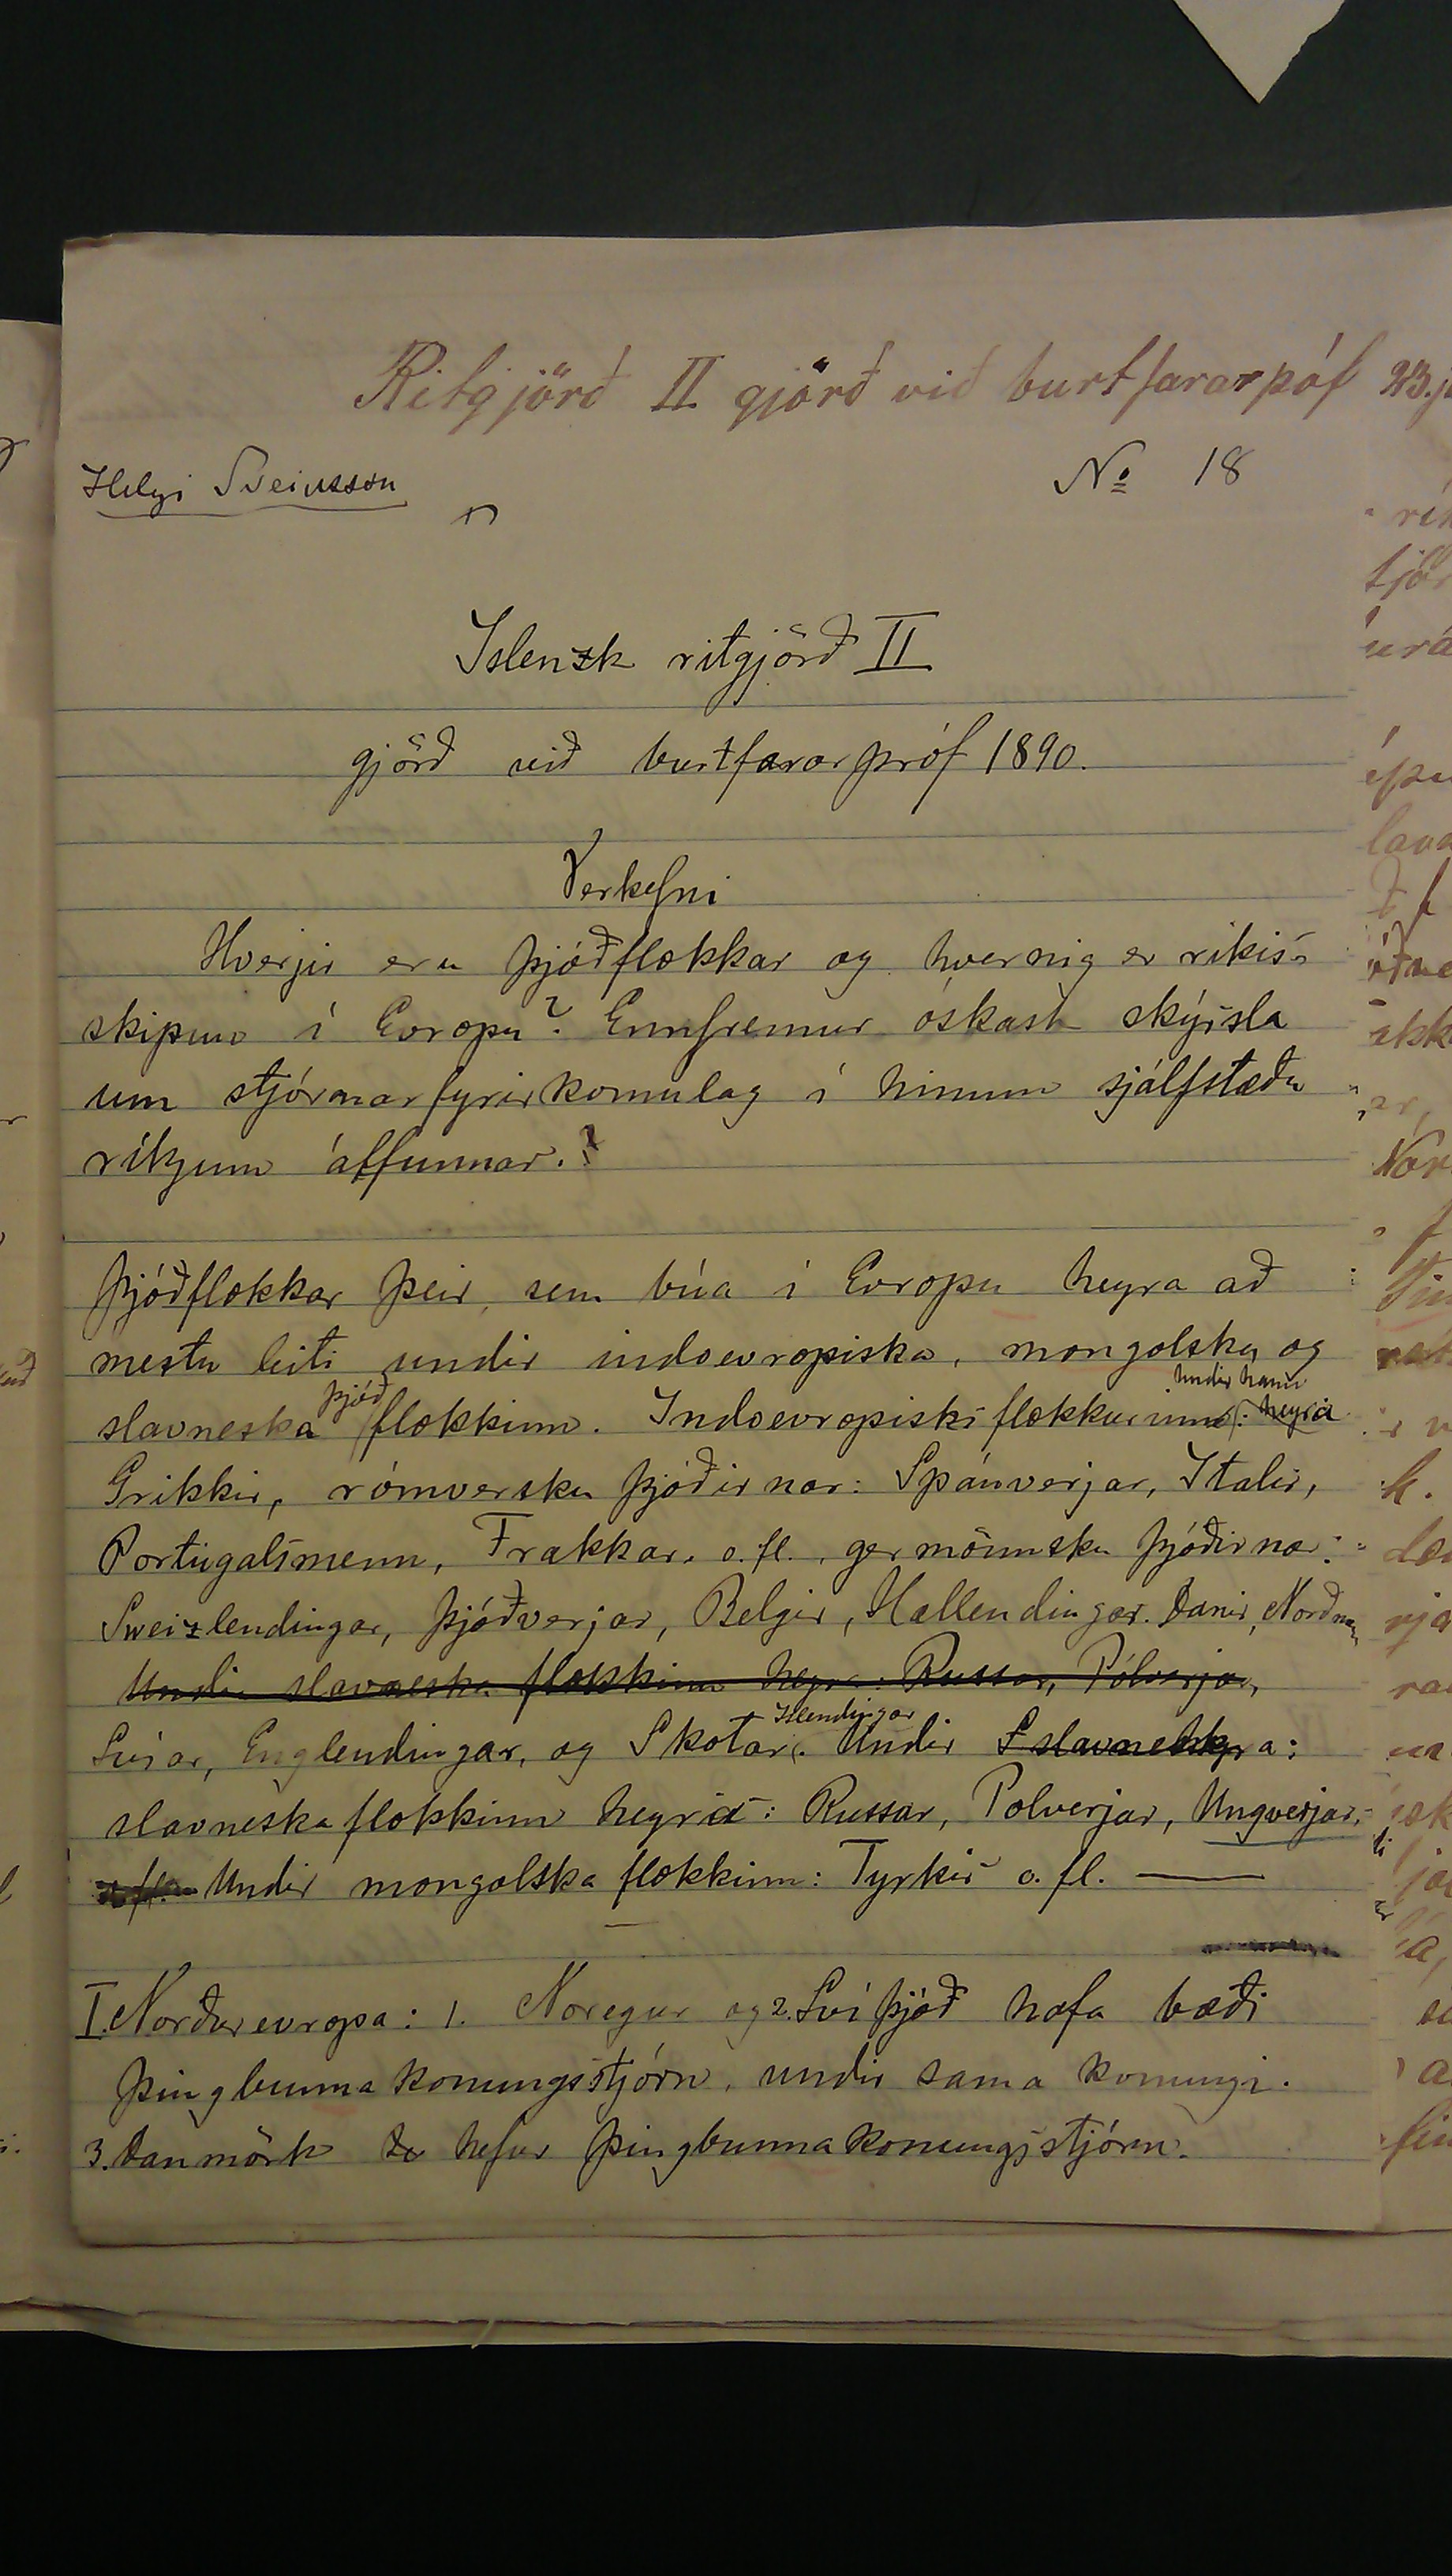 Ritgjörð II gjörð við burtfararpóf 23. j
Helgi Sveinsson
No 18
Islenzk ritgjörð II
gjörð við burtfararpróf 1890.
Verkefni
Hverjir eru þjóðflokkar og hvernig er ríkis-
skipun í Evropu? Ennfremur óskast skýrsla
um stjórnarfyrirkomulag í hinum sjálfstæðu
ríkjum álfunnar.
Þjóðflokkar þeir, sem búa í Evropu heyra að
mestu leiti undir indoevropiska, mongolska og
slavneska þjóðflokkinn. Indoevropiski flokkurinn: undir hann heyra
Grikkir, rómversku þjóðirnar: Spánverjar, Italir,
Portugalsmenn, Frakkar o. fl., germönnsku þjóðirnar:
Sweizlendingar, Þjóðverjar, Belgir, Hollendingar. Danir, Norðmenn
Undir slavneska flokkinn heyra: Russar, Pólverjar,
Svíar, Englendingar, og Skotar, Islendingar. Undir slavneska:
slavneska flokkinn heyra: Russar, Polverjar, Ungverjar.
Undir mongolska flokkinn: Tyrkir o. fl. —
I. Norðurevropa: 1. Noregur og 2. Svíþjóð hafa bæði
þingbunna konungsstjórn, undir sama konungi.
3. Danmörk hefur þingbunna konungsstjórn.